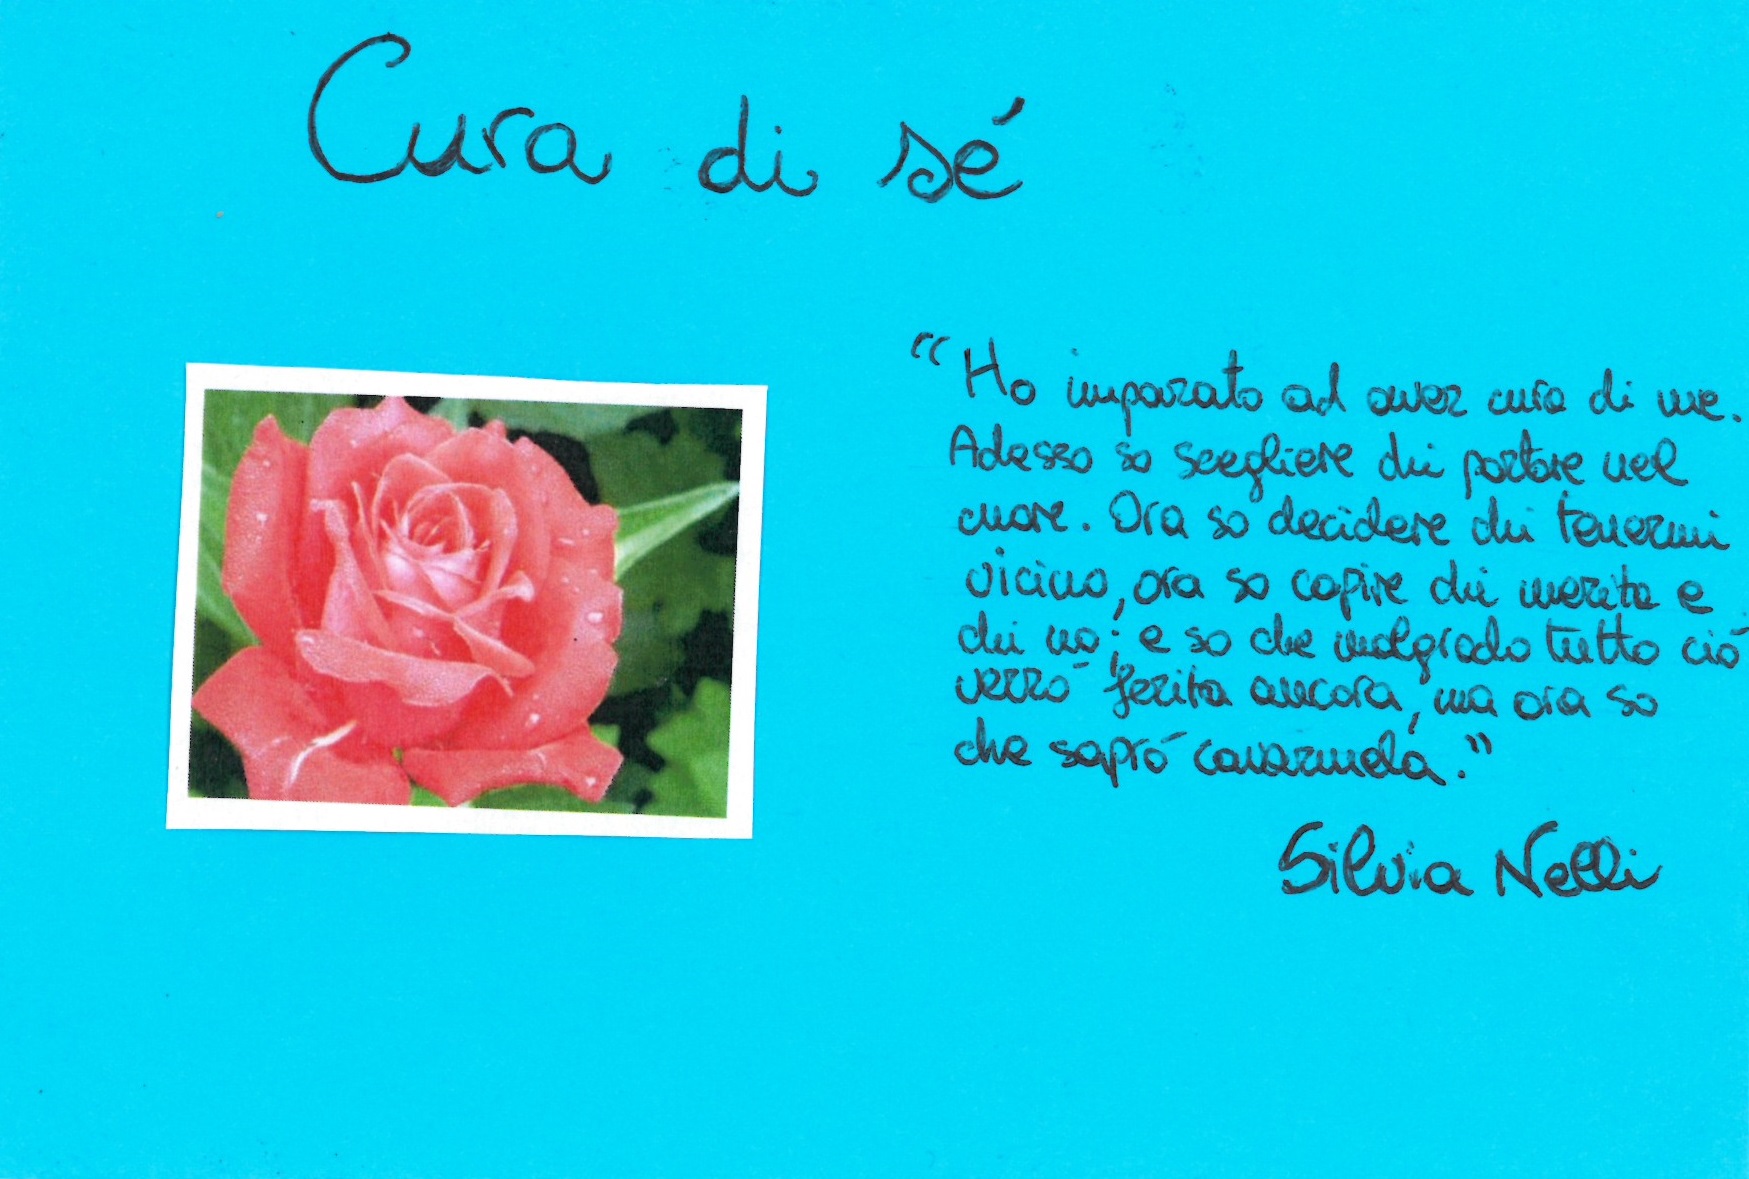 Cura di sé
“Ho imparato ad aver cura di me.
Adesso so scegliere chi portare nel
cuore. Ora so decidere chi tenermi
vicino, ora so capire chi merita e
chi no; e so che malgrado tutto ciò
verrò ferita ancora, ma ora so
che sapró cavarmela.”
Silvia Nelli